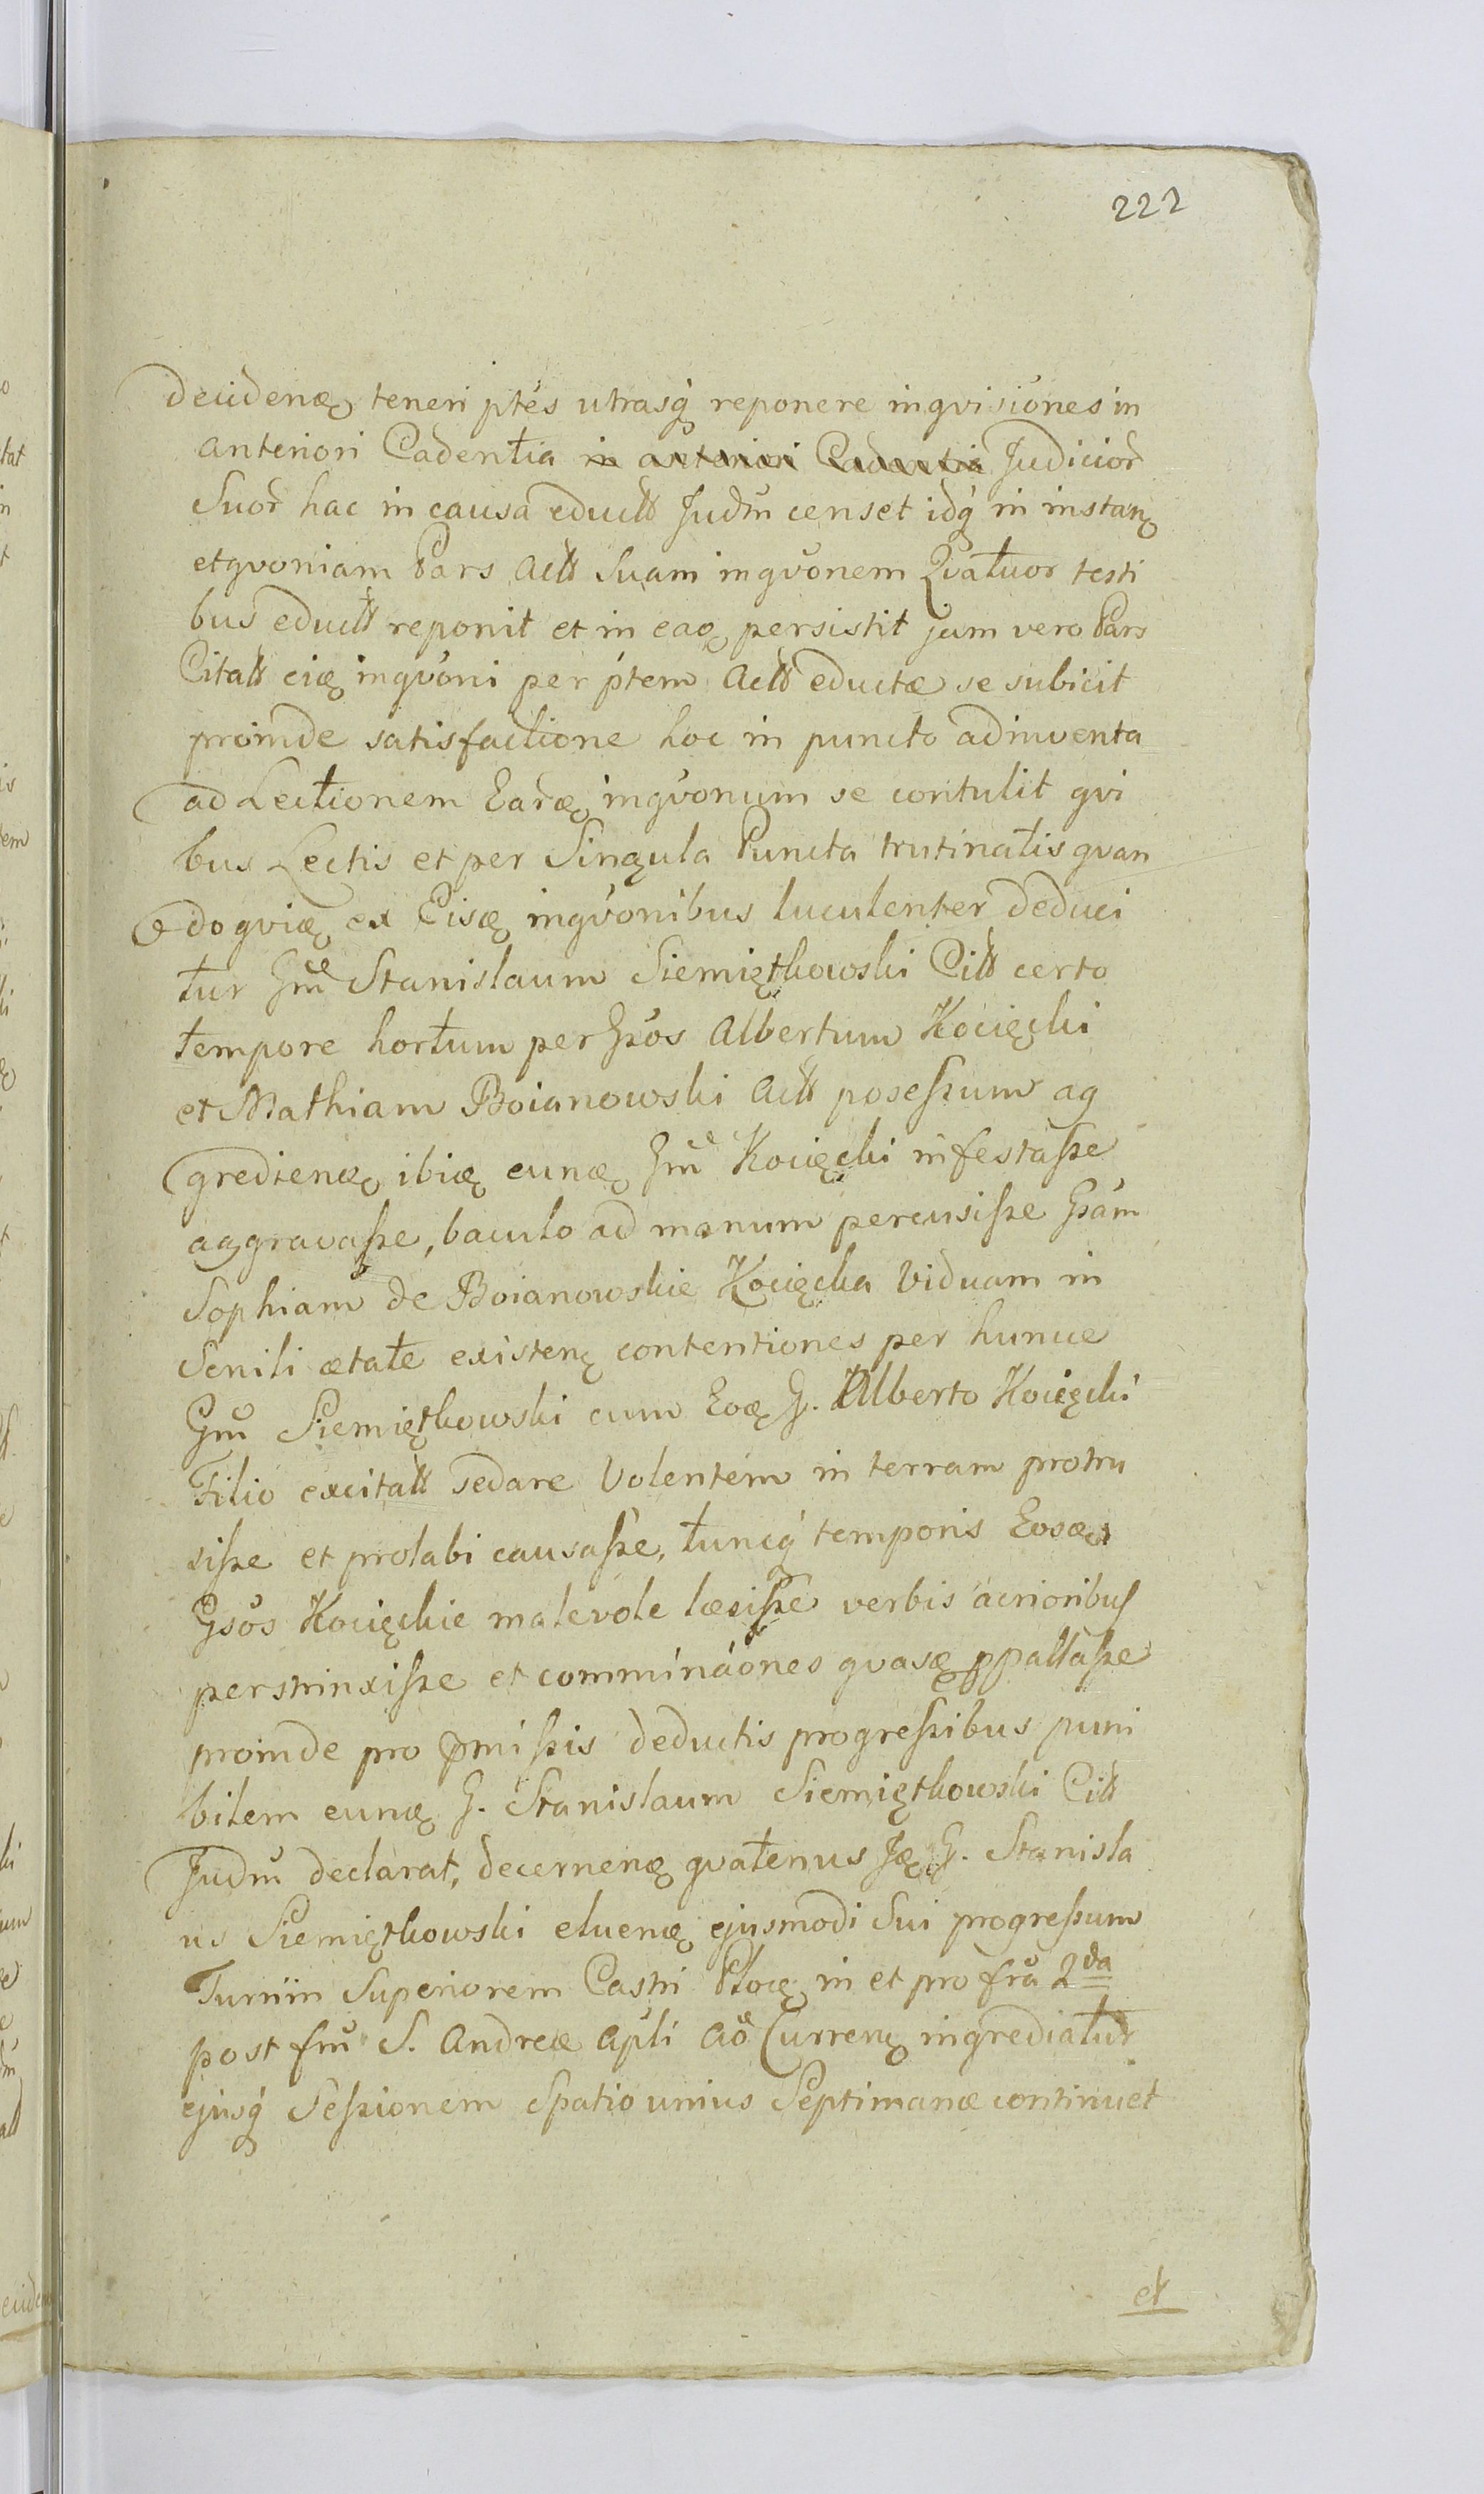 222
decidenđ teneri ptes utrasq́ reponere inqvisiones in
anteriori Cadentia in anteriori Cadentia Judicior
Suor hac in causa eductt Judm censet idq́ in instanę
et qvoniam Pars Actt Suam inqvonem Qvatuor testi
bus eductt reponit et in eaę persistit jam vero Pars
Citatt eiæ inqvoni per ptem Actt eductæ se subicit
proinde satisfactione hoc in puncto adinventa
ad Lectionem Earæ inqvonum se contulit qvi
bus Lectis et per Singula Puncta trutinatis qvan
do qviæ ex Eisæ inqvonibus luculenter deduci
tur Gm̃ Stanislaum Siemiętkowski Citt certo
tempore hortum per Gsos Albertum Kocięcki
et Mathiam Boianowski Actt posessum ag
gredienæ ibiæ eunæ Gm̃ Kocięcki infestasse
aggravasse, baculo ad manum percusisse Gsam
Sophiam de Boianowskie Kocięcka Viduam in
Senili ætate existenę contentiones per hunce
Gm̃ Siemiętkowski cum Eoæ G. Alberto Kocięcki
Filio excitatt sedare Volentem in terram protru
sisse et prolabi causasse, tuncq́ temporis Eosæ
Gsos Kocięckie malevole læsisse verbis acrioribus
perstrinxisse et comminaones qvasæ ppallasse
proinde pro pmissis deductis progressibus puni
bilem eunæ G. Stanislaum Siemiętkowski Citt
Judm declarat, decernenæ qvatenus Jæ G. Stanisla
us Siemiętkowski eluenæ ejusmodi Sui progressum
Turrim Superiorem Castri Plocę in et pro fra 2da
post fm̃ S. Andreæ Apli Ao Currenę ingrediatur
ejusq́ Sessionem Spatio unius Septimanæ continuet
et